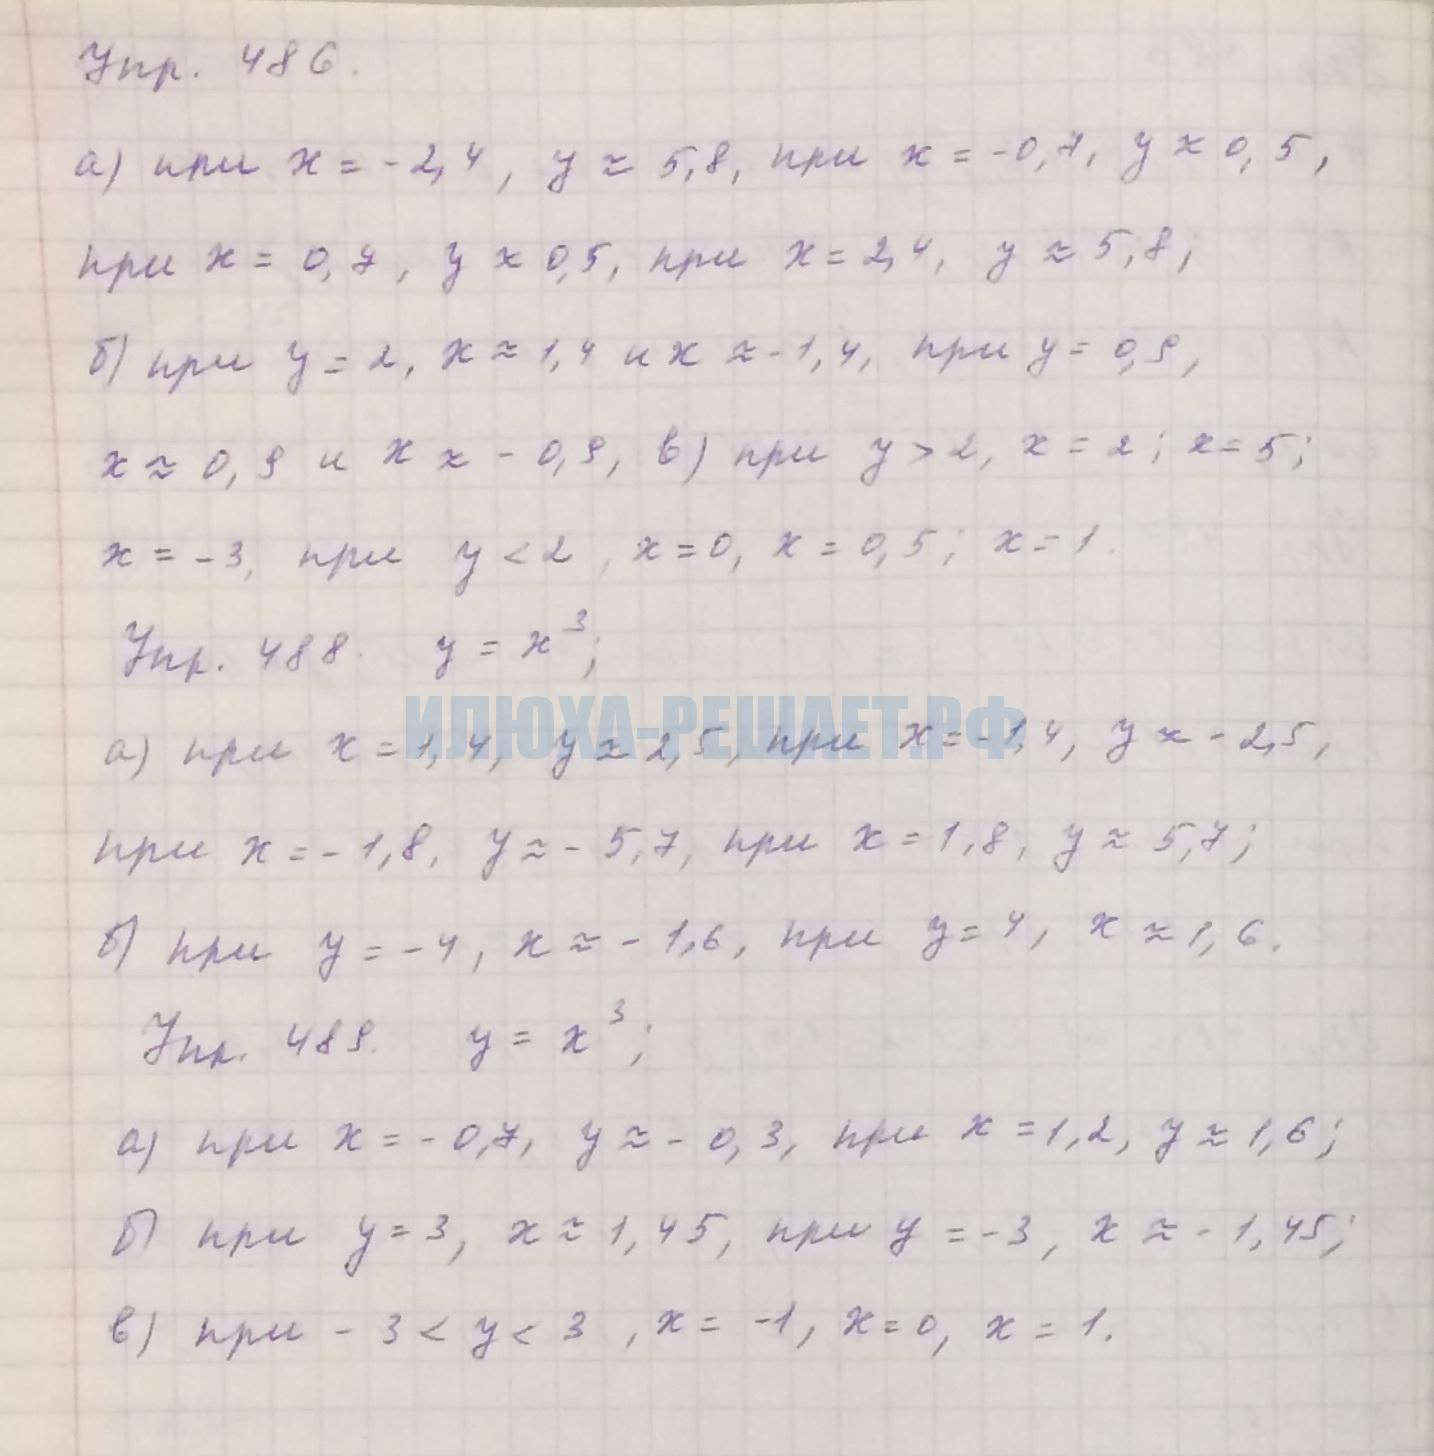 Упр. 486.
а) при x = -2,4, y ≈ 5,8, при x = -0,7, y ≈ 0,5,
при x = 0,7, y ≈ 0,5, при x = 2,4, y ≈ 5,8;
б) при y = 2, x ≈ 1,4 и x ≈ -1,4, при y = 0,9,
x ≈ 0,9 и x ≈ - 0,9, в) при y > 2, x = 2; x = 5;
x = -3, при y < 2, x = 0, x = 0,5; x = 1.
Упр. 488. y = x³;
ИЛЮХА-РЕШАЕТ.РФ
а) при x = 1,4, y ≈ 2,5, при x = -1,4, y ≈ - 2,5,
при x = - 1,8, y ≈ - 5,7, при x = 1,8, y ≈ 5,7;
б) при y = -4, x ≈ - 1,6, при y = 4, x ≈ 1,6.
Упр. 489. y = x³;
а) при x = - 0,7, y ≈ - 0,3, при x = 1,2, y ≈ 1,6;
б) при y = 3, x ≈ 1,45, при y = -3, x ≈ - 1,45;
в) при - 3 < y < 3, x = -1, x = 0, x = 1.